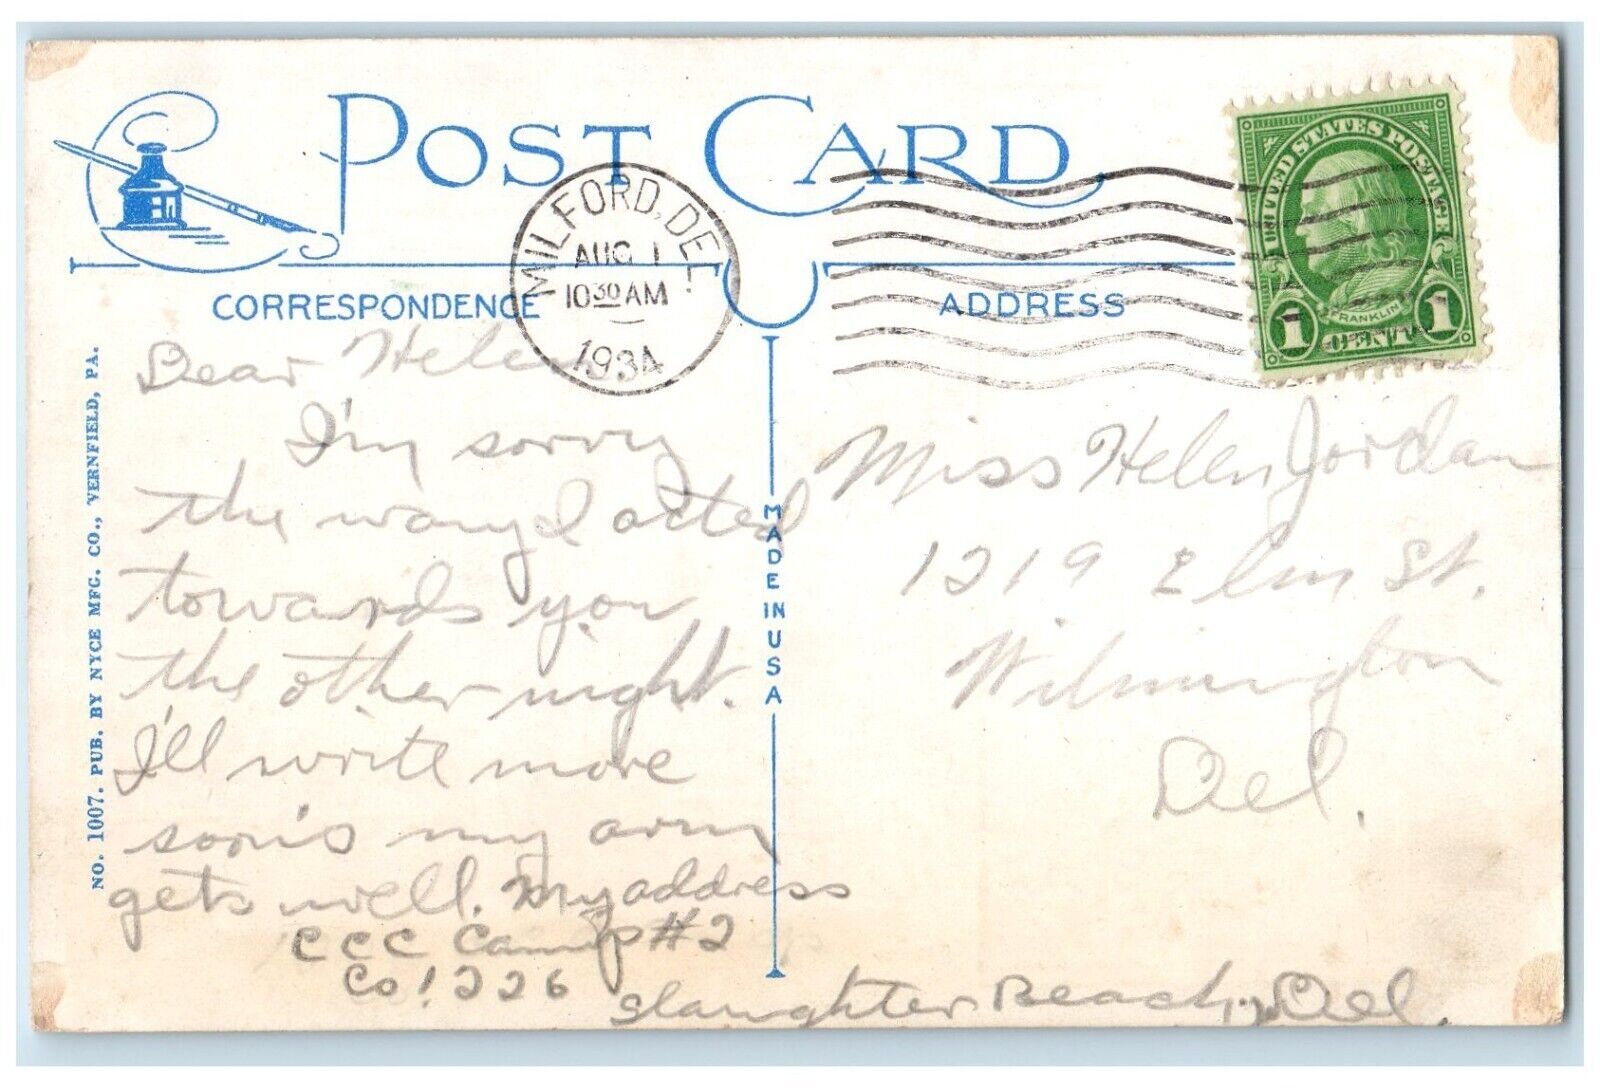 POST CARD
MILFORD, DEL.
AUG 1
10 30 AM
1934
UNITED STATES POSTAGE
FRANKLIN
1 CENT 1
CORRESPONDENCE
ADDRESS
NO. 1007. PUB. BY NYCE MFG. CO., VERNFIELD, PA.
MADE IN USA
Dear Helen
I'm sorry
the way I acted
towards you
the other night.
I'll write more
soon's my arm
gets well. My address
CCC Camp #2
Co! 1226
Slaughter Beach, Del.
Miss Helen Jordan
1219 Elm St.
Wilmington
Del.